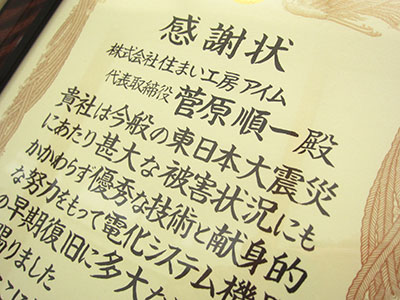 感謝状
株式会社住まい工房アイム
代表取締役 菅原順一殿
貴社は今般の東日本大震災
にあたり甚大な被害状況にも
かかわらず優秀な技術と献身的
な努力をもって電化システム機
の早期復旧に多大な
賜りました